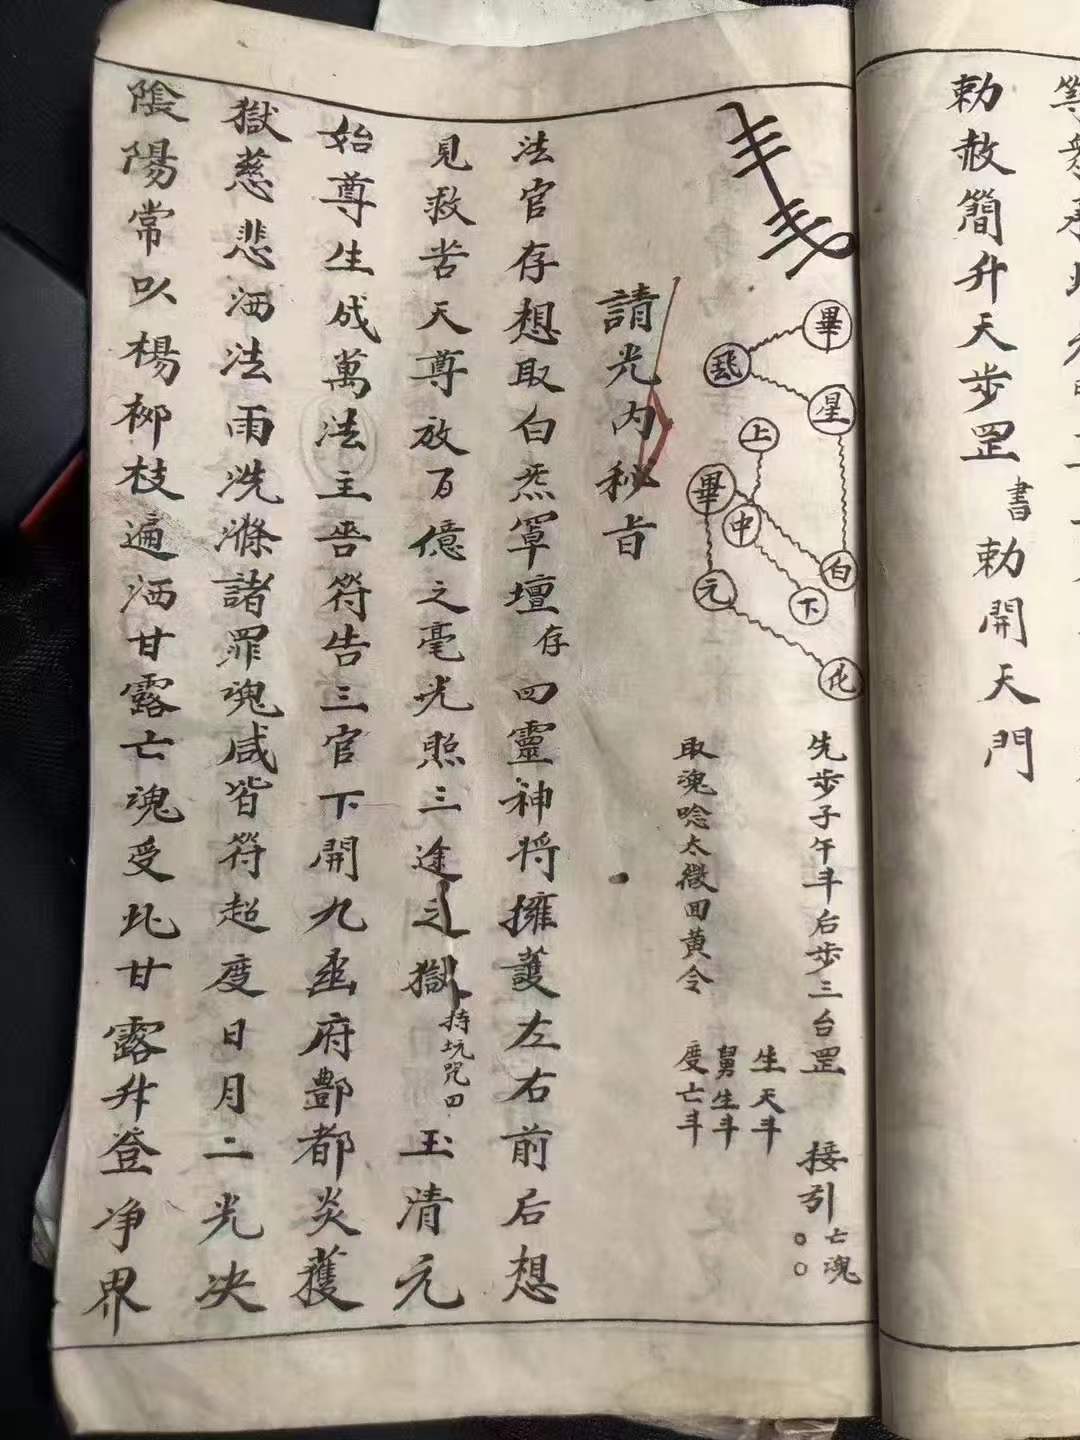 勅赦簡升天步罡書勅開天門
畢
星
上
畢
中
白
元
下
先步子午斗后步三台罡
接引亡魂○○
生天斗
舅生斗
度亡斗
取魂唸太微回黄令
請光内秘旨
法官存想取白炁罩壇存四靈神将擁護左右前后想
見救苦天尊放百億之毫光照三途之獄持坑咒四玉清元
始尊生成萬法主告符告三官下開九幽府酆都炎蒦
獄慈悲洒法雨洗滌諸罪魂咸皆符超度日月二光决
陰陽常以楊柳枝遍洒甘露亡魂受此甘露升登净界